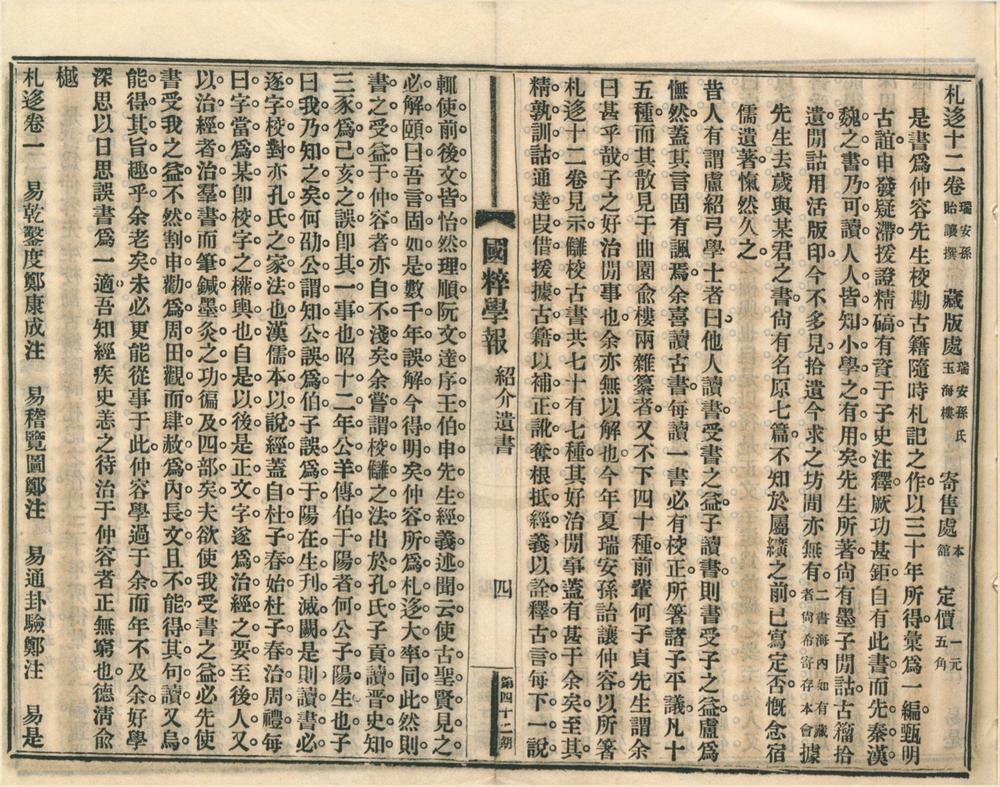 札迻十二卷 瑞安孫詒讓撰 藏版處 瑞安孫氏玉海樓 寄售處 本館 定價 一元五角
是書爲仲容先生校勘古籍隨時札記之作以三十年所得彙爲一編甄明
古誼申發疑滯援證精碻有資于子史注釋厥功甚鉅自有此書而先秦漢
魏之書乃可讀人人皆知小學之有用矣先生所著尙有墨子閒詁古籀拾
遺閒詁用活版印今不多見拾遺今求之坊間亦無有二書海內如有藏者尙希寄存本會據
先生去歲與某君之書尙有名原七篇不知於屬纊之前已寫定否慨念宿
儒遺著愾然久之
昔人有謂盧紹弓學士者曰他人讀書受書之益子讀書則書受子之益盧爲
憮然蓋其言固有諷焉余喜讀古書每讀一書必有校正所箸諸子平議凡十
五種而其散見于曲園俞樓兩雜纂者又不下四十種前輩何子貞先生謂余
曰甚乎哉子之好治閒事也余亦無以解也今年夏瑞安孫詒讓仲容以所箸
札迻十二卷見示讎校古書共七十有七種其好治閒事蓋有甚于余矣至其
精孰訓詁通達叚借援據古籍以補正訛奪根抵經義以詮釋古言每下一說
國粹學報 紹介遺書 四 第四十二期
輒使前後文皆怡然理順阮文達序王伯申先生經義述聞云使古聖賢見之
必解頤曰吾言固如是數千年誤解今得明矣仲容所爲札迻大率同此然則
書之受益于仲容者亦自不淺矣余嘗謂校讎之法出於孔氏子貢讀晉史知
三豕爲己亥之誤卽其一事也昭十二年公羊傳伯于陽者何公子陽生也子
曰我乃知之矣何劭公謂知公誤爲伯子誤爲于陽在生刊滅闕是則讀書必
逐字校對亦孔氏之家法也漢儒本以說經蓋自杜子春始杜子春治周禮每
曰字當爲某卽校字之權輿也自是以後是正文字遂爲治經之要至後人又
以治經者治羣書而筆鍼墨灸之功徧及四部矣夫欲使我受書之益必先使
書受我之益不然割申勸爲周田觀而肆赦爲內長文且不能得其句讀又烏
能得其旨趣乎余老矣未必更能從事于此仲容學過于余而年不及余好學
深思以日思誤書爲一適吾知經疾史恙之待治于仲容者正無窮也德淸俞
樾
札迻卷一 易乾鑿度鄭康成注 易稽覽圖鄭注 易通卦驗鄭注 易是